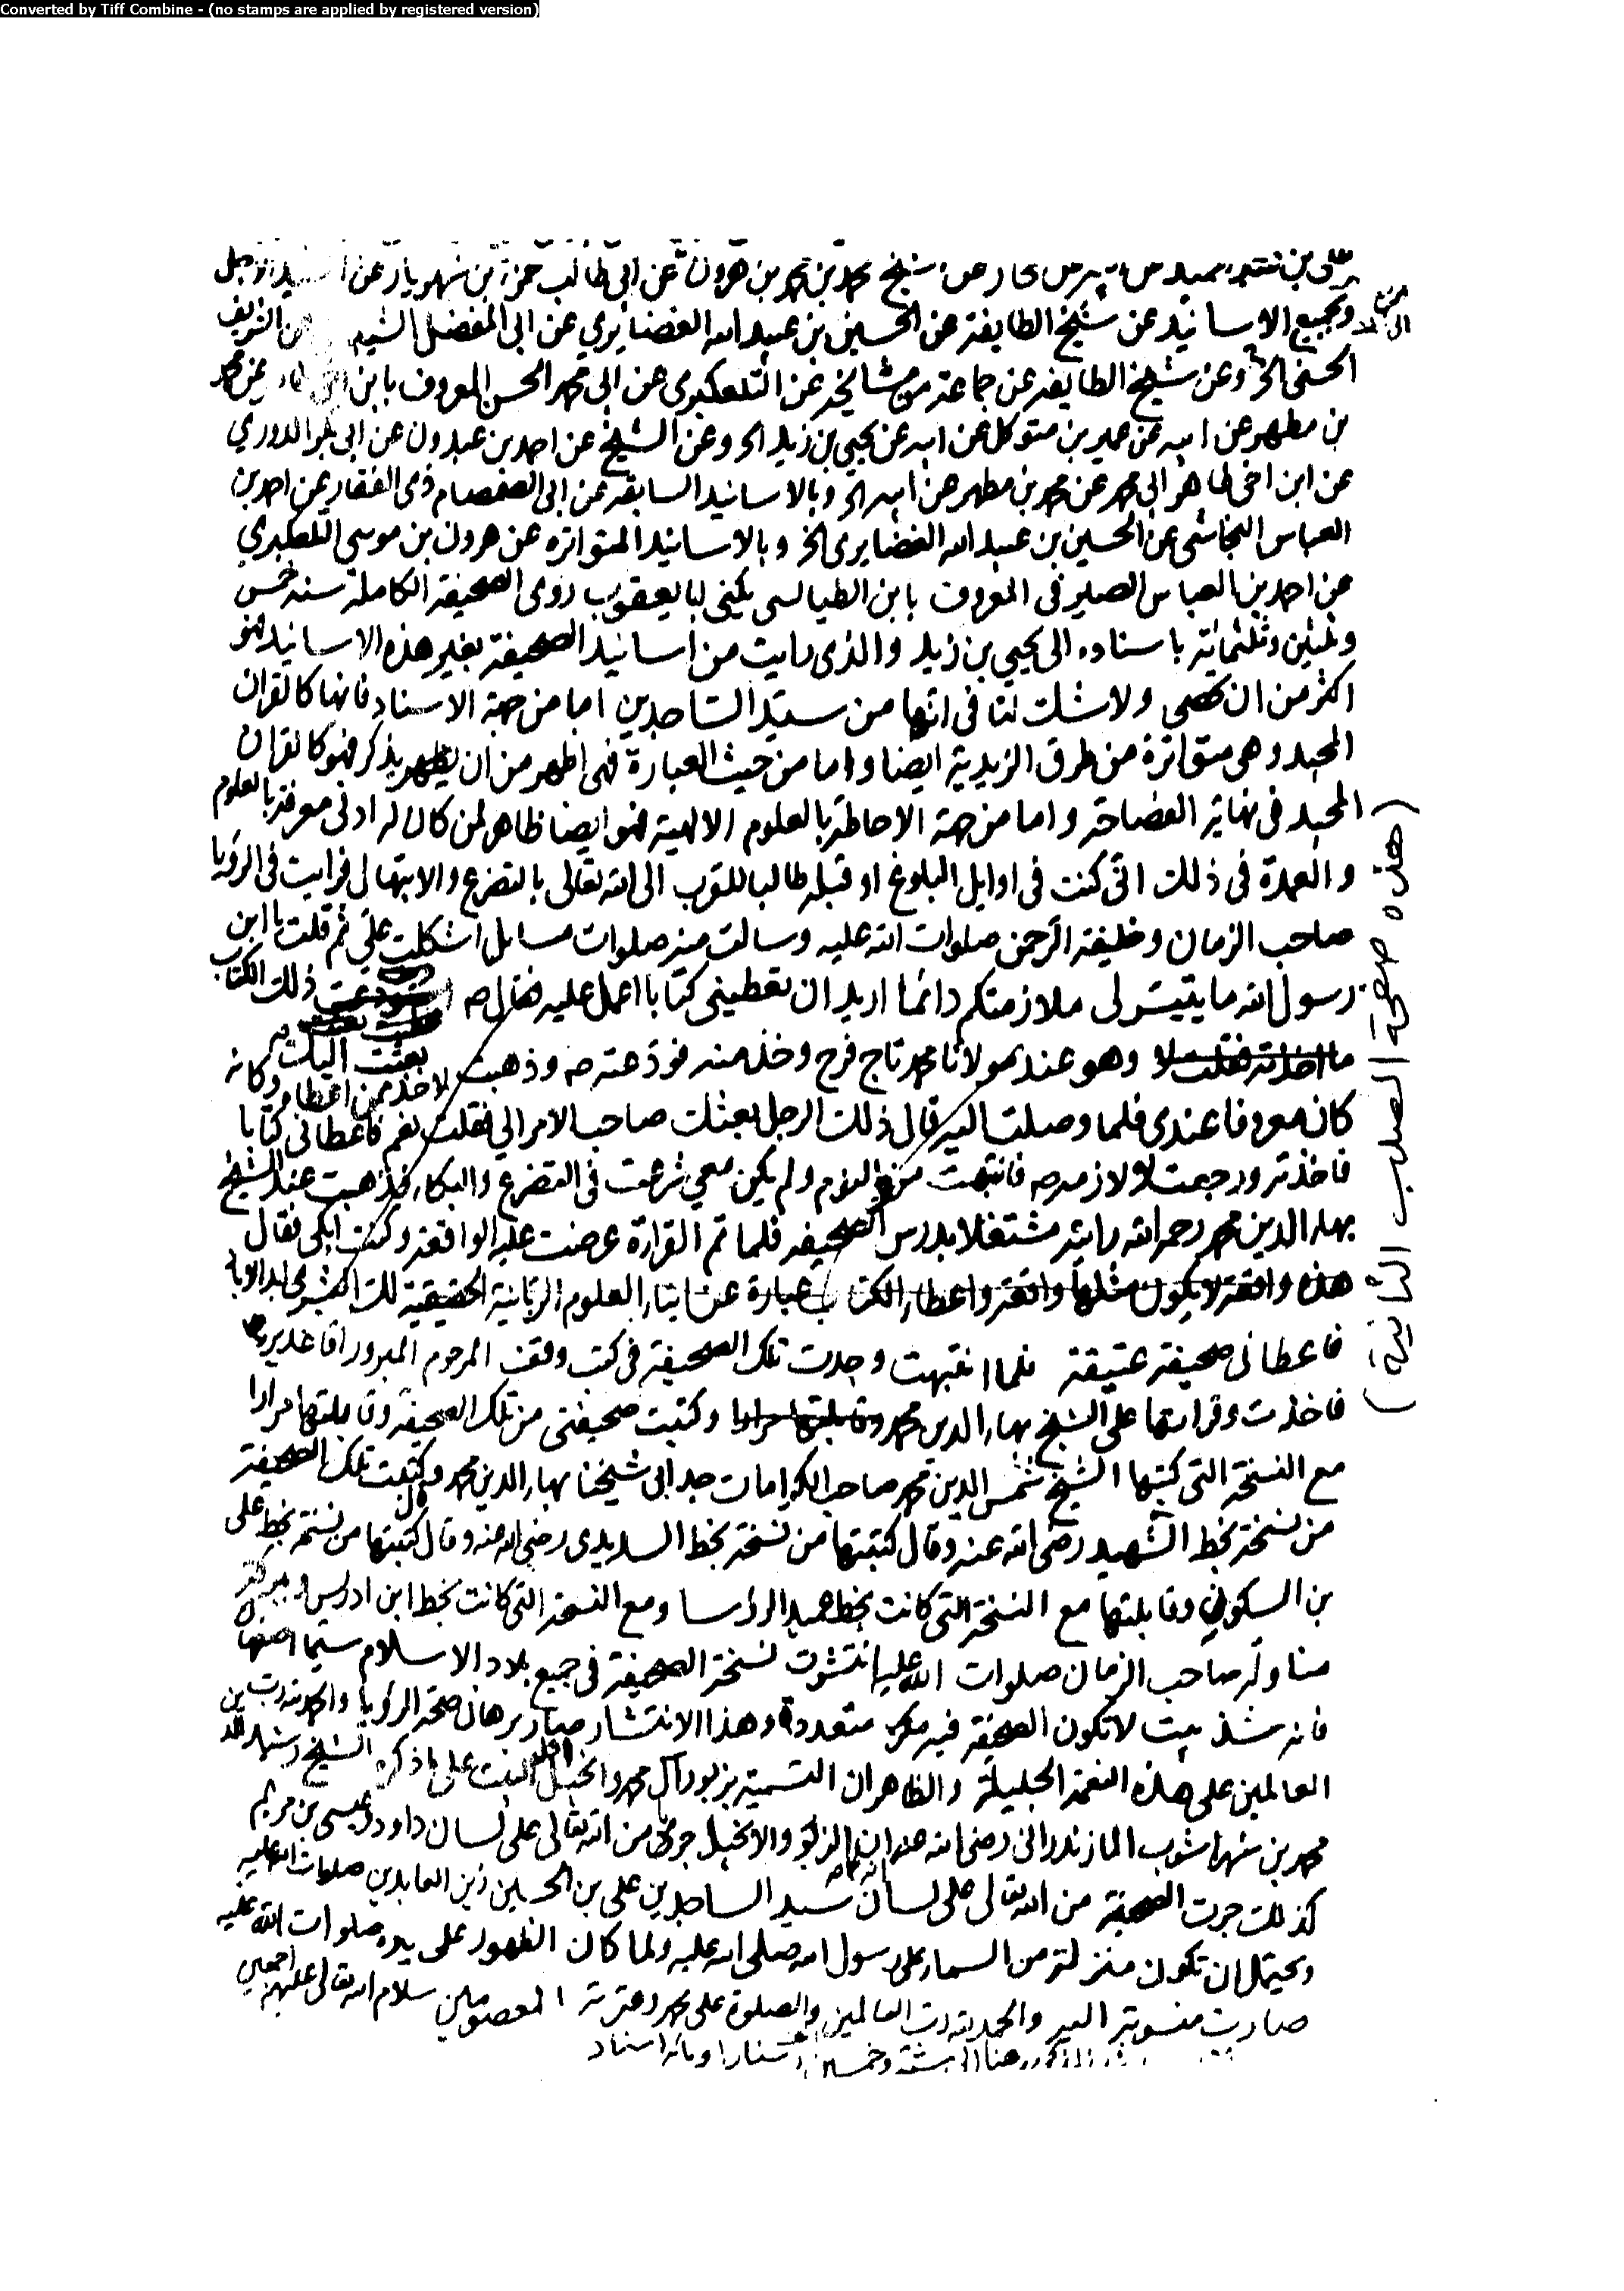 Converted by Tiff Combine - (no stamps are applied by registered version)
محمد بن محمد بن هرون عن ابي طالب حمزة بن شهريار عن السيد الاجل
وبجميع الاسانيد عن شيخ الطايفة عن الحسين بن عبيد الله الغضايري عن ابي المفضل عن الشريف
الحسني الخ وعن شيخ الطايفة عن جماعة من مشايخه عن التلعكبري عن ابي محمد الحسن المعروف بابن عن محمد
بن مطهر عن ابيه عن عمير بن متوكل عن ابيه عن يحيى بن زيد الخ وعن الشيخ عن احمد بن عبدون عن ابي بكر الدوري
عن ابن اخي طاهر ابي محمد عن محمد بن مطهر عن ابيه الخ وبالاسانيد السابقة عن ابي الصمصام ذي الفقار عن احمد بن
العباس النجاشي عن الحسين بن عبيد الله الغضايري الخ وبالاسانيد المتواترة عن هرون بن موسى التلعكبري
عن احمد بن العباس الصيرفي المعروف بابن الطيالسي يكنى ابا يعقوب روى الصحيفة الكاملة سنة خمس
وثلثين وثلثمائة باسناده الى يحيى بن زيد والذي رايت من اسانيد الصحيفة بغير هذه الاسانيد فهو
اكثر من ان تحصى ولا شك لنا في انها من سيد الساجدين اما من جهة الاسناد فانها كالقران
المجيد وهي متواترة من طرق الزيدية ايضا واما من حيث العبارة فهي اظهر من ان يذكر فهو كالقران
المجيد في نهاية الفصاحة واما من جهة الاحاطة بالعلوم الالهية فهو ايضا ظاهر لمن كان له ادنى معرفة بالعلوم
والعمدة في ذلك اني كنت في اوايل البلوغ او قبله طالبا للقرب الى الله تعالى بالتضرع والابتهال فرايت في الرؤيا
صاحب الزمان وخليفة الرحمن صلوات الله عليه وسالت منه صلوات مسايل اشكلت علي ثم قلت يا ابن
رسول الله ما يتيسر لي ملازمتكم دائما اريد ان تعطيني كتابا اعمل عليه فقال ص ذلك الكتاب
وهو عند مولانا محمد تاج فرح وخذ منه فودعته ص وذهبت لاخذ وكانه
بعثت اليك
كان معروفا عندي فلما وصلت اليه قال ذلك الرجل بعثك صاحب الامر الي فقلت نعم فاعطاني كتابا
فاخذته ورجعت لالازمه ص فانتبهت من النوم ولم يكن معي شرعت في التضرع والبكاء فذهبت عند الشيخ
بهاء الدين محمد رحمه الله رايته مشتغلا بدرس الصحيفة فلما تم القراءة عرضت عليه الواقعة وكنت ابكي فقال
هذه واقعة لا يكون مثلها واقعة واعطاء الكتاب عبارة عن ايتاء العلوم الربانية الحقيقية لك
فاعطاني صحيفة عتيقة فلما انتبهت وجدت تلك الصحيفة في كتب وقف المرحوم المبرور اقا غدير
فاخذت وقراتها على الشيخ بهاء الدين محمد وقابلتها مرارا وكتبت صحيفتي من تلك الصحيفة وقابلتها مرارا
مع النسخة التي كتبها الشيخ شمس الدين محمد صاحب الكرامات جد ابي شيخنا بهاء الدين محمد وكتبت تلك الصحيفة
من نسخة بخط الشهيد رضي الله عنه وقال كتبتها من نسخة بخط السديدي رضي الله عنه وقال كتبتها من نسخة بخط علي
بن السكون وقابلتها مع النسخة التي كانت بخط عميد الرؤسا ومع النسخة التي كانت بخط ابن ادريس وببركة
مناولة صاحب الزمان صلوات الله عليه انتشرت نسخة الصحيفة في جميع بلاد الاسلام سيما اصفهان
فانه شذ بيت لا تكون الصحيفة فيه متعددة وهذا الانتشار صار برهان صحة الرؤيا والحمد لله رب
العالمين على هذه النعمة الجليلة والظاهر ان التسمية بزبور آل محمد وانجيل اهل البيت على ما ذكره الشيخ رشيد الدين
محمد بن شهراشوب المازندراني رضي الله عنه ان الزبور والانجيل جرى من الله تعالى على لسان داود وعيسى بن مريم
كذلك جرت الصحيفة من الله تعالى على لسان سيد الساجدين علي بن الحسين زين العابدين صلوات الله عليه
ويحتمل ان تكون منزلة من السماء على رسول الله صلى الله عليه ولما كان الظهور على يده صلوات الله عليه
صارت منسوبة اليه والحمد لله رب العالمين والصلوة على محمد وعترته المعصومين سلام الله تعالى عليهم اجمعين
هنا الى ستة وخمسين اسنادا ومائة اسناد
(هذه صفحة الصلب الثانية)